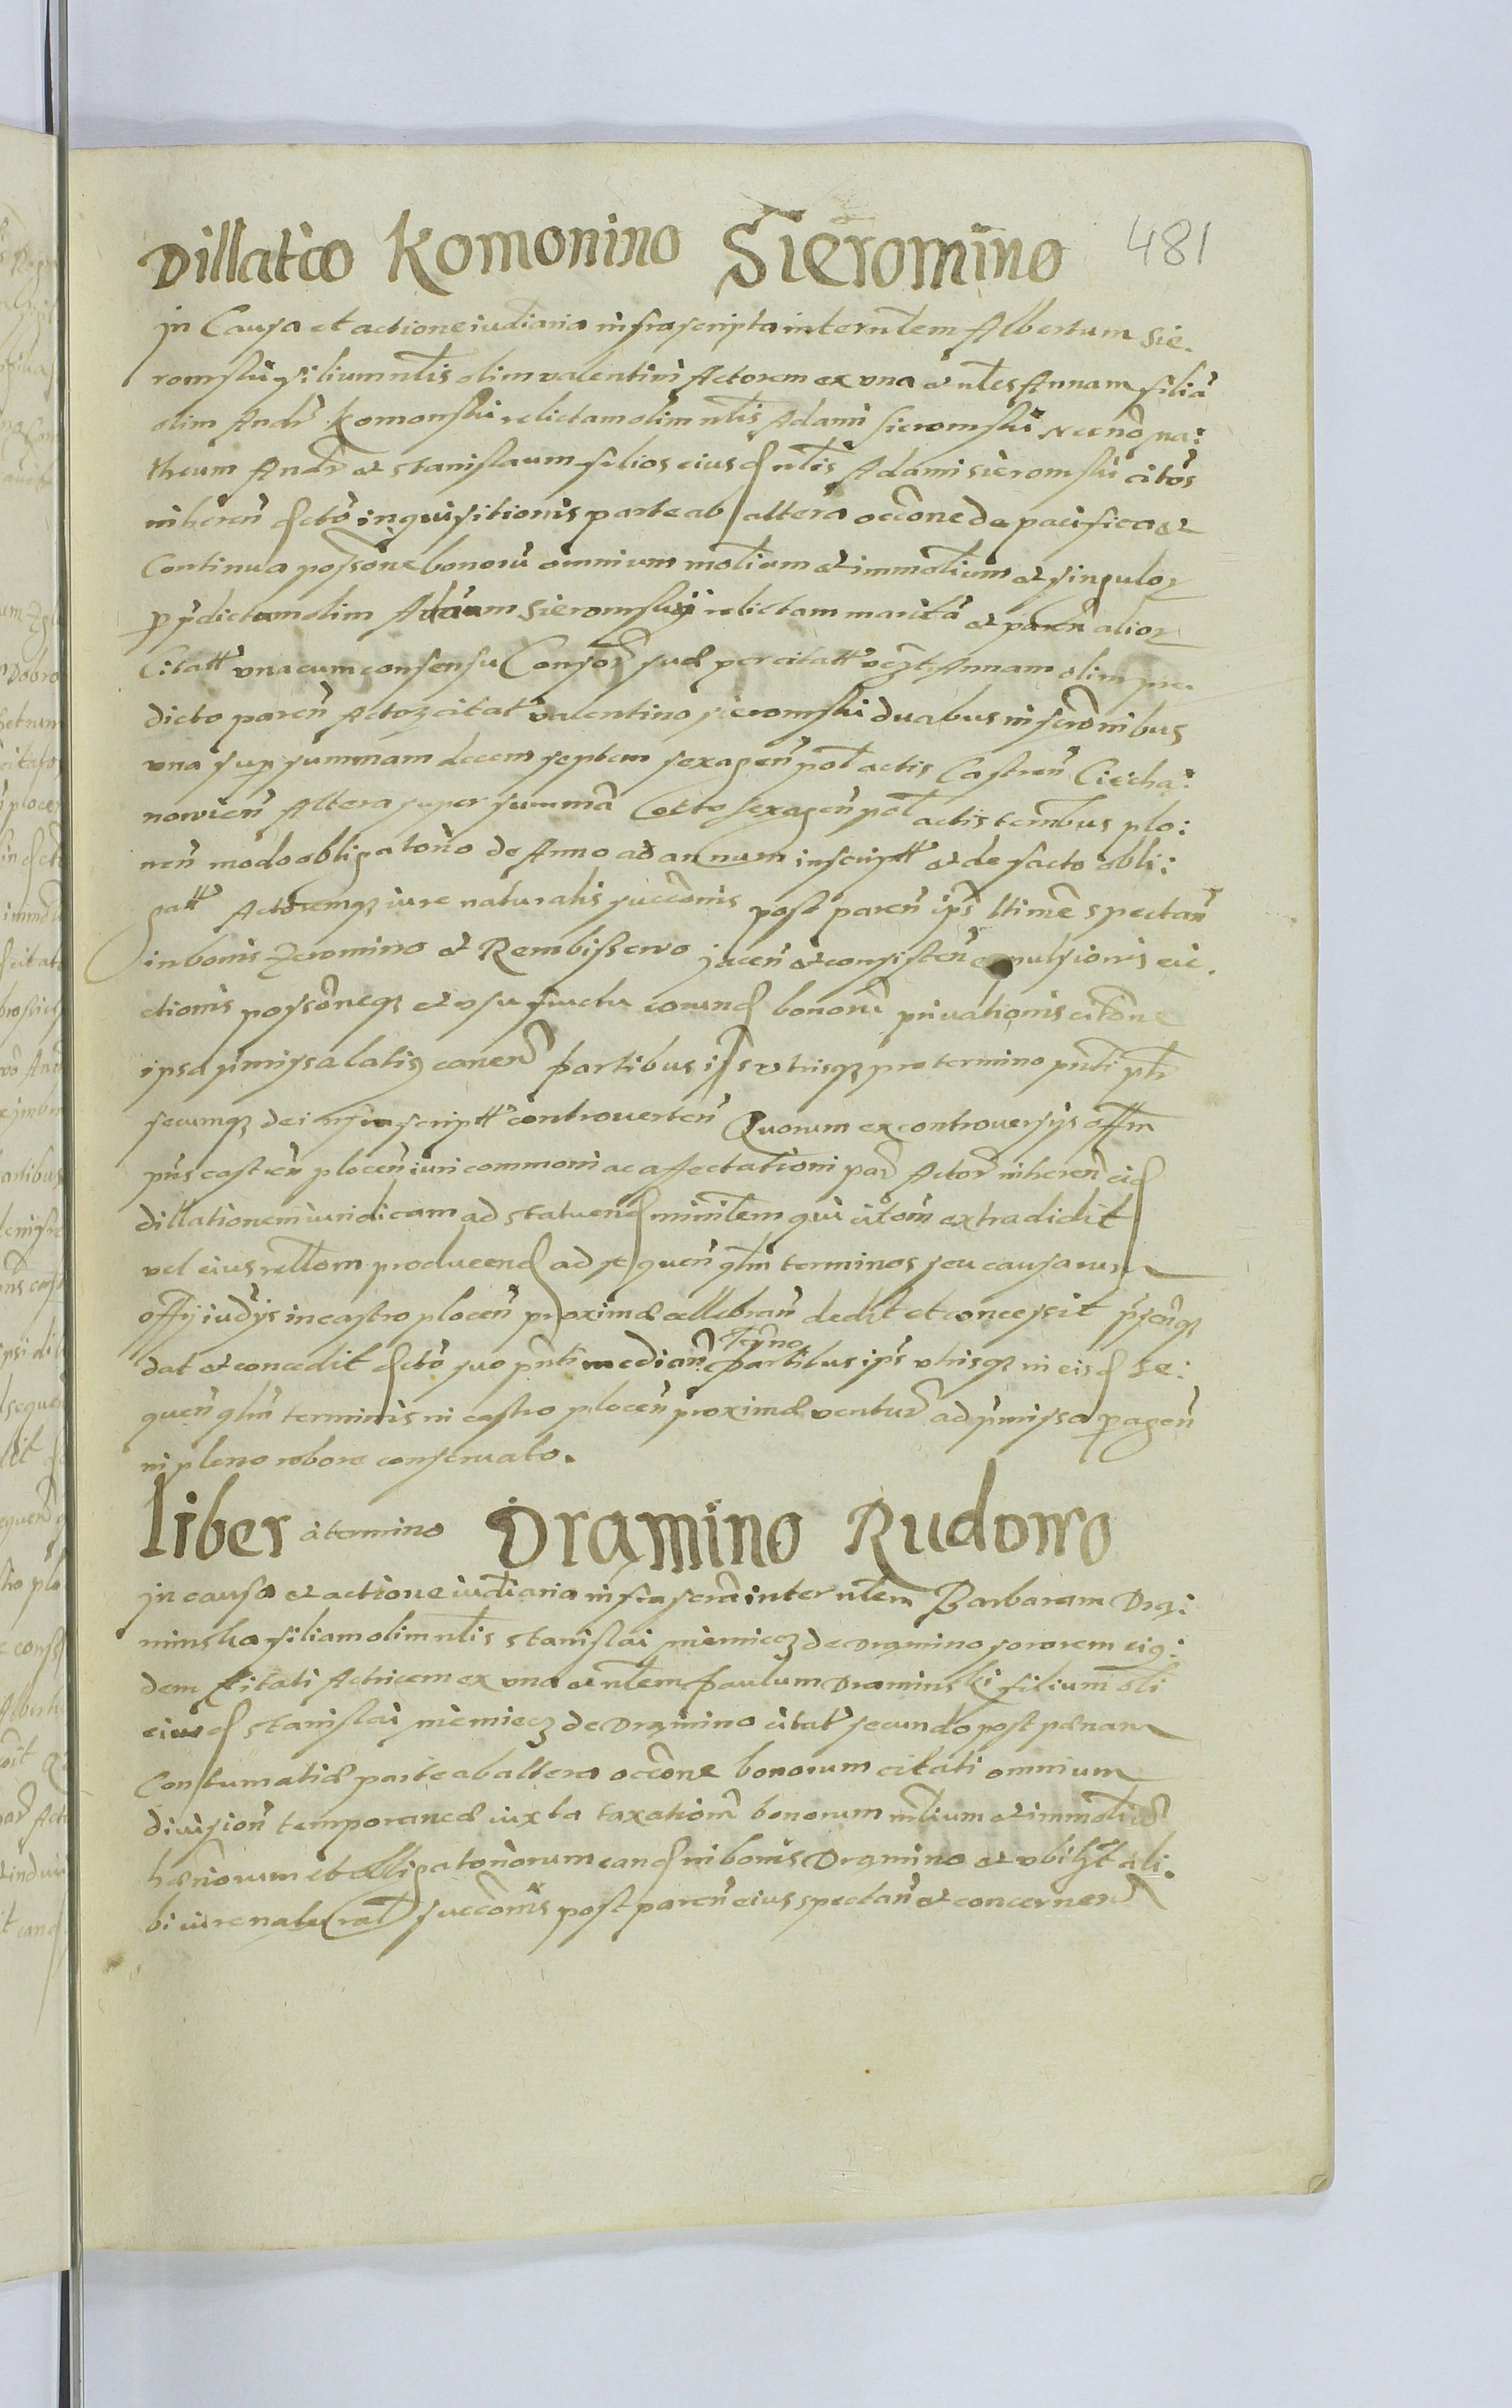 481
Dillatio Komonino Sieromino
in Causa et actione iudiaria infrascripta inter nlem Albertum Sie.
romski filium nlis olim valentini Actorem ex vna et nles Annam filiā
olim Andr Komonski relictam olim nlis Adami Sieromski necnō Ma:
theum Andr et Stanislaum filios eiusd nlis Adami Sieromski citos
inheren dcto inquisitionis parte ab altera occōne de pacifica et
Continua possōne bonorū omnium molium et immolium et singulor
p pdictum olim Adam Sieromskij relictam maritū et paren alior
Citatt vnacum consensu Consor suæ per citatt Annam olim pre
dicto paren Actor citat valentino Sieromski duabus inscrōnibus
vna sup summam decem septem sexagen pol actis Castren Ciecha:
novien Altera super summā Octo sexagen pol actis terrībus plo:
cen modo obligatorio de Anno ad annum inscriptt et de facto obli:
gatt Actoremq iure naturalis succōnis post paren ips ltime spectan
in bonis Zeromino et Rembissewo jacen et consisten expulsionis eie.
ctionis possōneq et vsufructu eorund bonorū privationis citōne
ipsa pmissa latiq canen partibus ips vtrisq pro termino pnti pth
secumq de infrascriptt controverten Quorum ex controversÿs offm
pns castren plocen iuri communi ac affectationi par Actor inheren eid
dillationem iuridicam ad statuend minrlem qui citōm extradidit
vel eius rellom producend ad sequen qlm terminos seu causarum
offÿ iudÿs in castro plocen proximæ cellebran dedit et concessit pnsenq
dat et concedit dcto suo pnti median Termo partibus ips vtrisq in eisd se:
quen qlm terminis in castro plocen proximæ ventur ad pmissa pagen
in pleno robore conservato.
Liber à termino Dramino Rudowo
in causa et actione iudiaria infrascrā inter nlem Barbaram Dra:
minska filiam olim nlis Stanislai niemiecz de Dramino sororem eiq:
dem Citati Actricem ex vna et nlem Paulum Draminski filium oli
eiusd Stanislai niemiecz de Dramino citat secundo post pænam
Contumatiæ parte ab altera occōne bonorum citati omnium
division temporaneæ iuxta taxationē bonorum mlium et immoliū
hæriorum et obligatoriorum eand in bonis Dramino et vbilzt ali.
bi iure natural succōnis post paren eius spectan et concernen